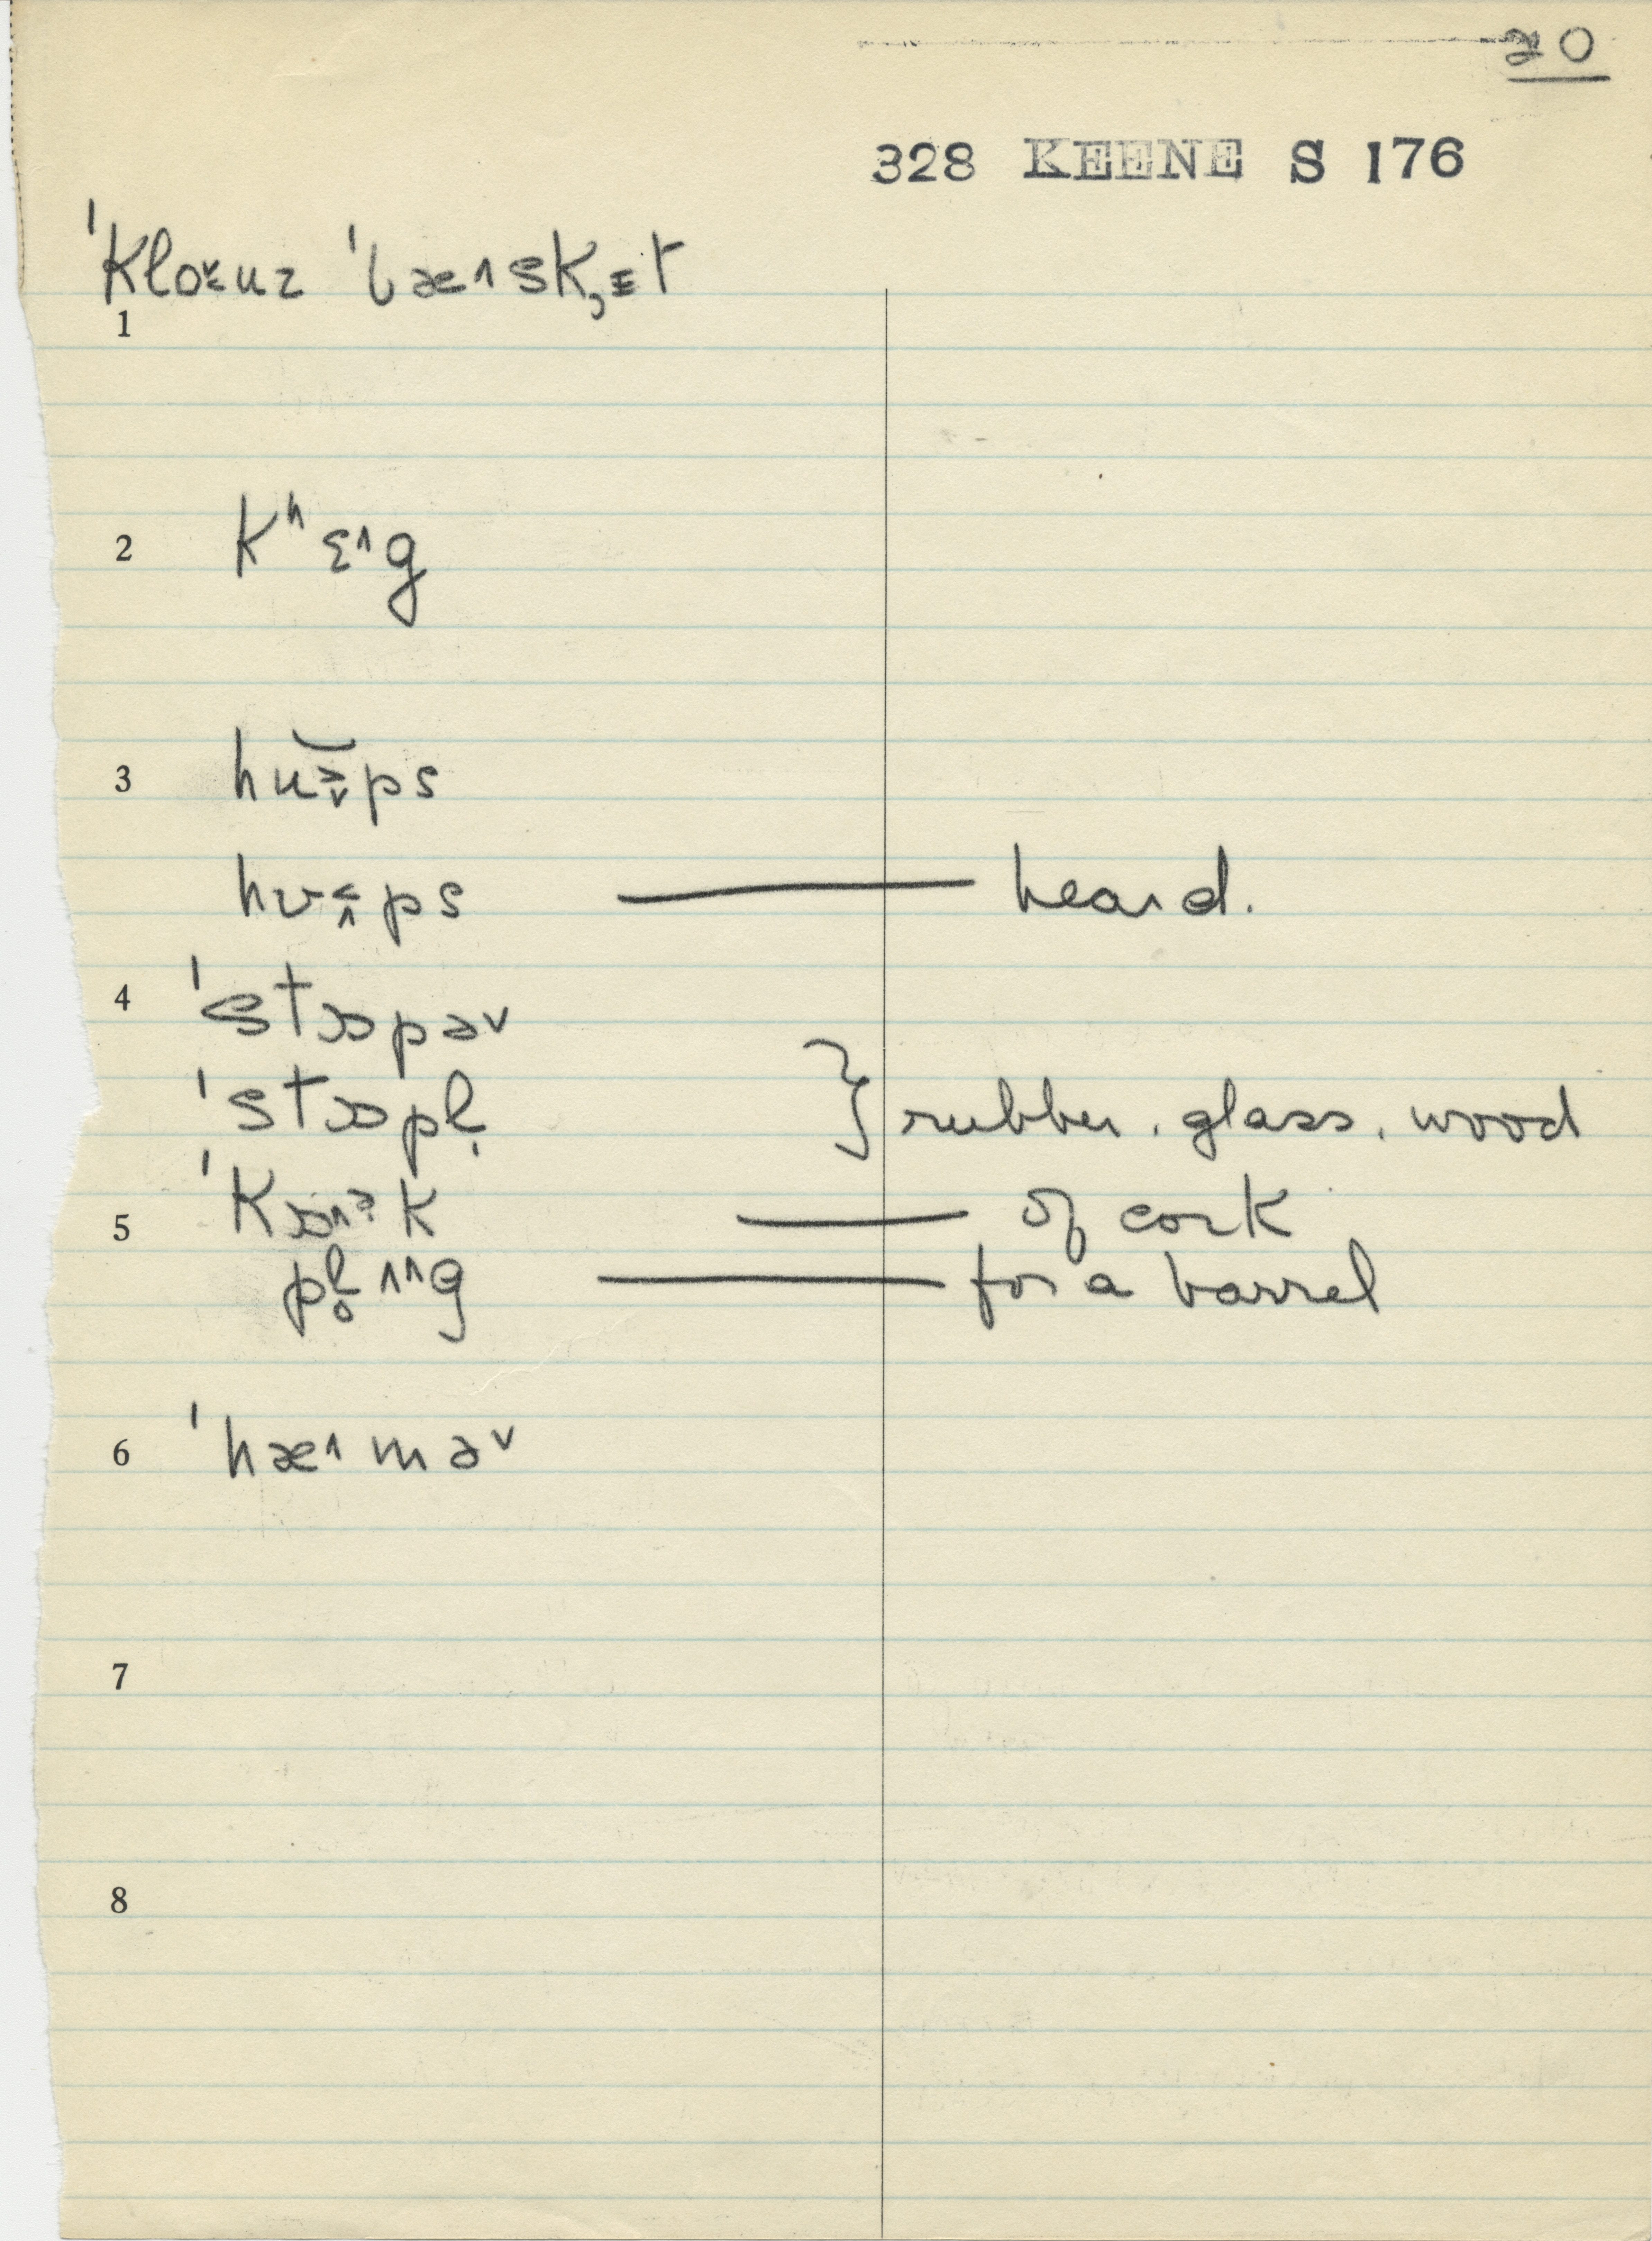 20
328 KEENE S 176
ˈklo˅uz ˈbæ˄sk,ɪt
1
2 kʰɛ˄g
3 hu˃˅ps
hʊ˂˄ps — heard.
4 ˈstɒpə˅
ˈstɒpl̩ } rubber. glass. wood
5 ˈkɒ˄ək — of cork
pl̥ʌ˄g — for a barrel
6 ˈhæ˄mə˅
7
8